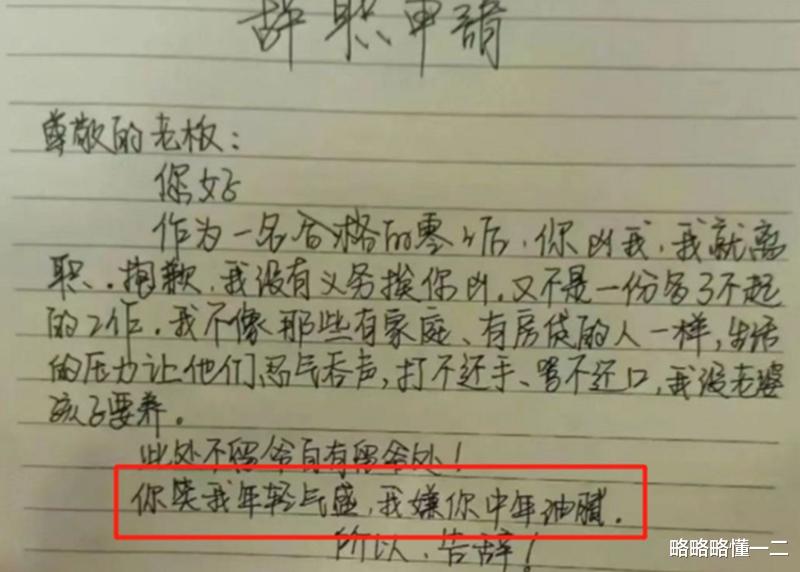 辞职申请
尊敬的老板：
你好
作为一名合格的零零后，你凶我，我就离
职。抱歉，我没有义务挨你凶。又不是一份多了不起
的工作。我不像那些有家庭、有房贷的人一样，生活
的压力让他们忍气吞声，打不还手、骂不还口，我没老婆
孩子要养。
此处不留爷自有留爷处！
你笑我年轻气盛，我嫌你中年油腻。
所以，告辞！
略略略懂一二